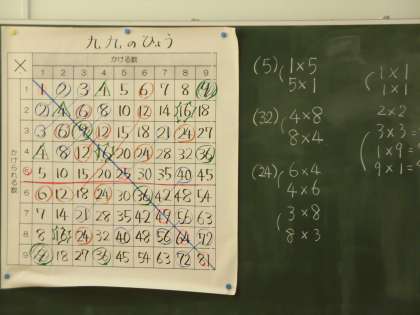 九九のひょう
かける数
× 1 2 3 4 5 6 7 8 9
かけられる数
1 1 2 3 4 5 6 7 8 9
2 2 4 6 8 10 12 14 16 18
3 3 6 9 12 15 18 21 24 27
4 4 8 12 16 20 24 28 32 36
5 5 10 15 20 25 30 35 40 45
6 6 12 18 24 30 36 42 48 54
7 7 14 21 28 35 42 49 56 63
8 8 16 24 32 40 48 56 64 72
9 9 18 27 36 45 54 63 72 81
(5) 1×5
5×1
(32) 4×8
8×4
(24) 6×4
4×6
3×8
8×3
1×1
1×1
2×2
3×3
1×9=
9×1=